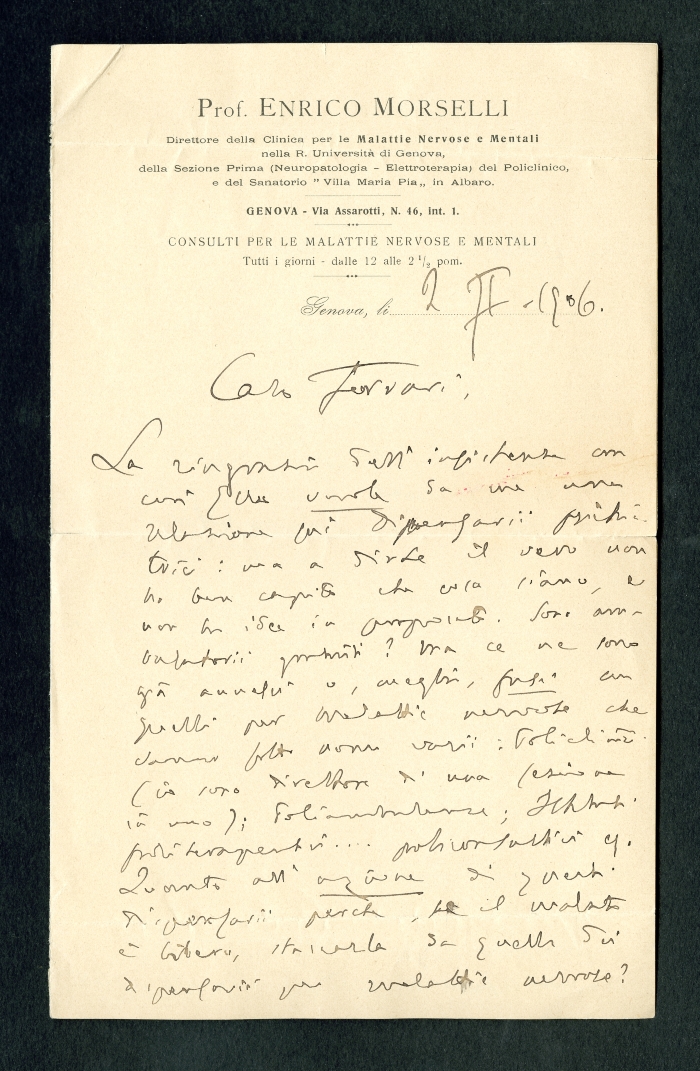 Prof. ENRICO MORSELLI
Direttore della Clinica per le Malattie Nervose e Mentali
nella R. Università di Genova,
della Sezione Prima (Neuropatologia - Elettroterapia) del Policlinico,
e del Sanatorio " Villa Maria Pia„ in Albaro.
GENOVA - Via Assarotti, N. 46, int. 1.
CONSULTI PER LE MALATTIE NERVOSE E MENTALI
Tutti i giorni - dalle 12 alle 2 1/2 pom.
Genova, li 2 VI - 1906.
Caro Ferrari,
La ringrazio dell' insistenza con
cui Ella vuole da me una
relazione sui dispensarii psichia-
trici: ma a dirle il vero non
ho ben capito che cosa siano, e
non ho idee in proposito. Sono am-
bulatorii gratuiti? Ma ce ne sono
già annessi o, meglio, fusi con
quelli per malattie nervose che
vanno sotto nomi varii: Policlinici
(io sono direttore di una sezione
in uno); Poliambulanze; Istituti
fisioterapeutici .... policonsultivi
Quanto all' azione di questi
dispensarii perchè, se il malato
è libero, staccarla da quella dei
dispensarii per malattie nervose?